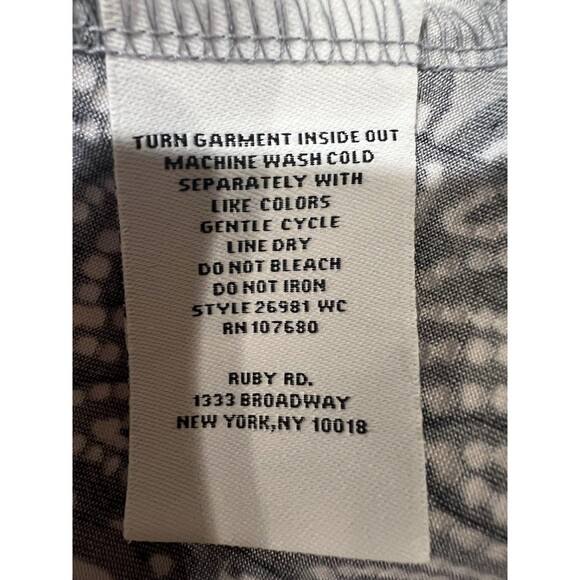 TURN GARMENT INSIDE OUT
MACHINE WASH COLD
SEPARATELY WITH
LIKE COLORS
GENTLE CYCLE
LINE DRY
DO NOT BLEACH
DO NOT IRON
STYLE 26981 WC
RN 107680
RUBY RD.
1333 BROADWAY
NEW YORK,NY 10018